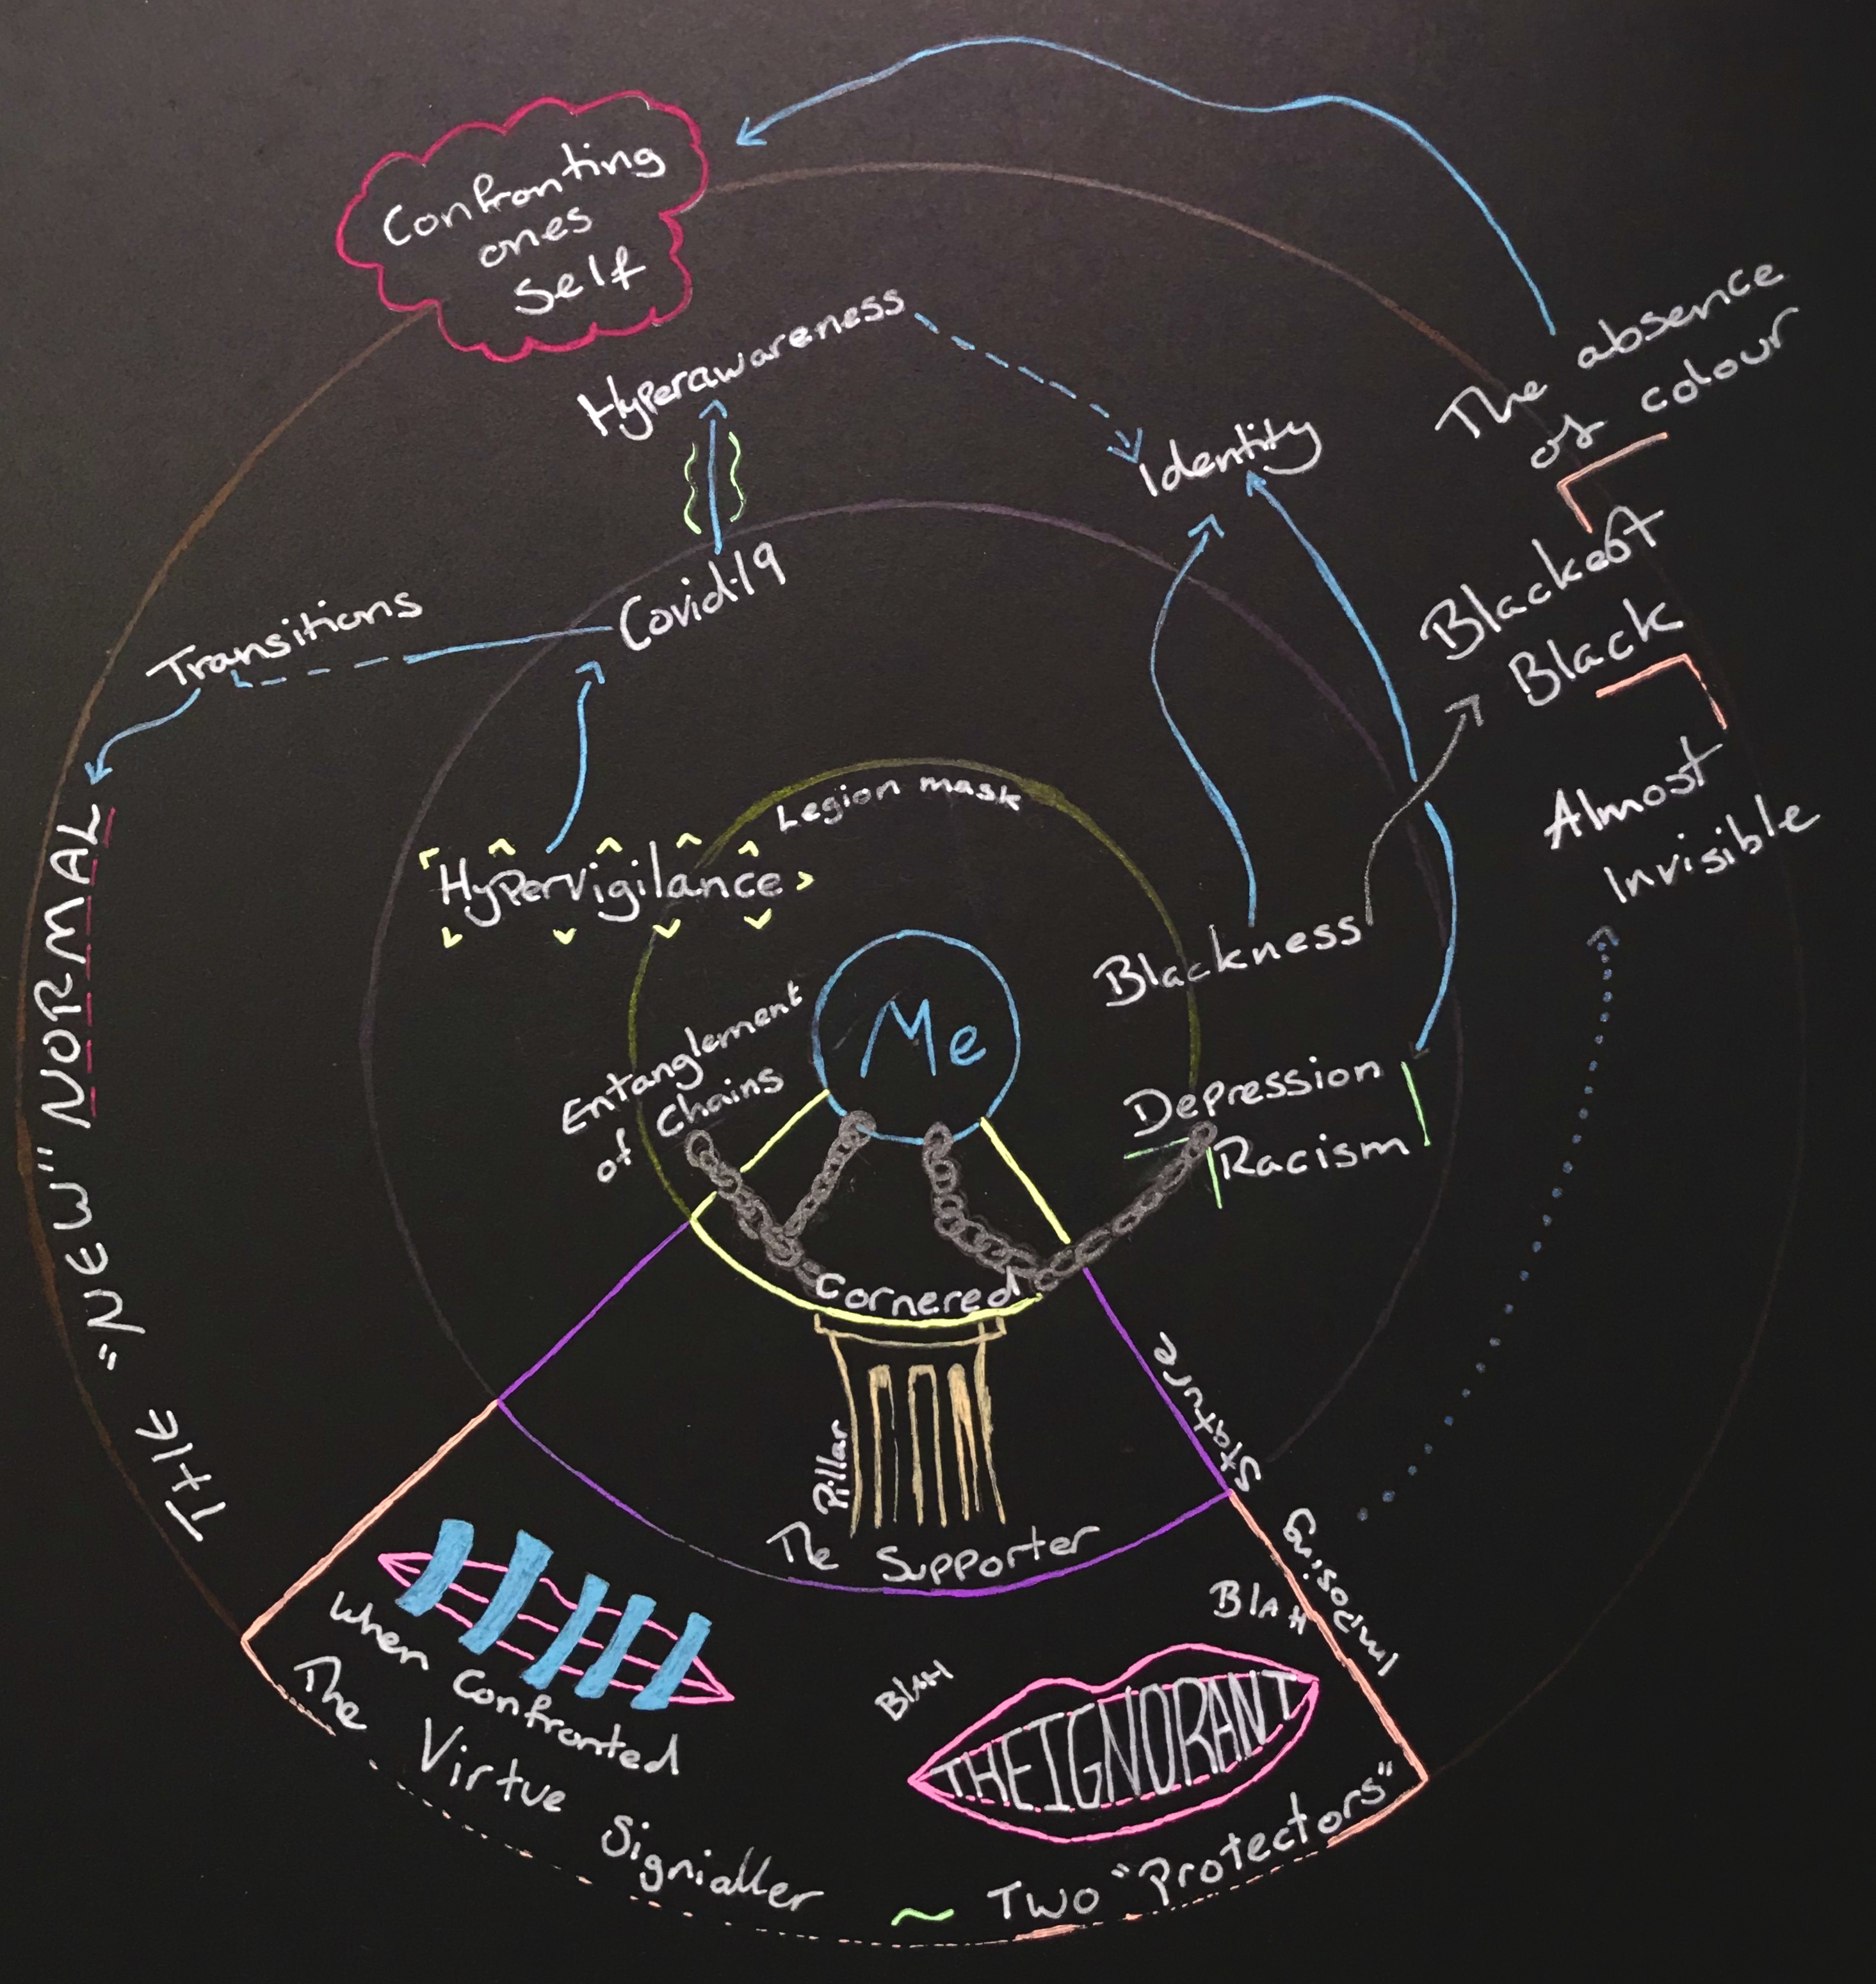 Confronting
ones
Self
Hyperawareness
Identity
The absence
of colour
Blackest
Black
Almost
Invisible
Covid-19
Transitions
Legion mask
Hypervigilance
Me
Blackness
Entanglement
of Chains
Depression
Racism
Cornered
THE "NEW" NORMAL
Stature
Imposing
Pillar
The Supporter
When Confronted
The Virtue Signialler ~ Two "Protectors"
BLAH
BLAH
THE IGNORANT